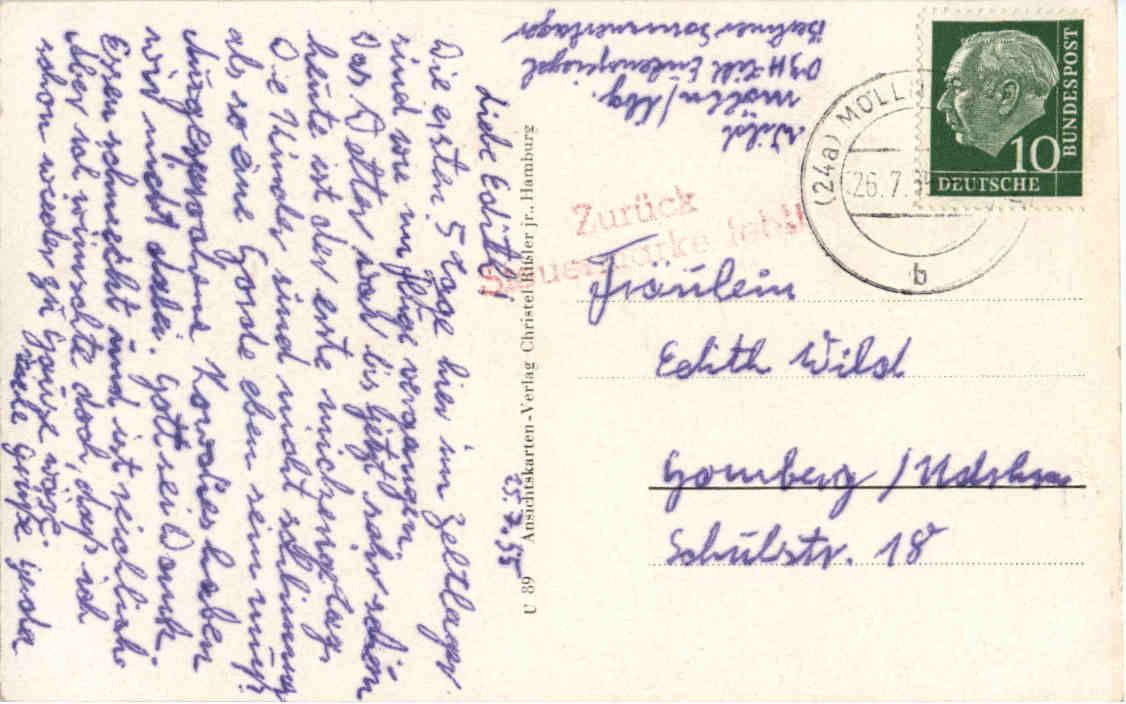 25.7.55
Liebe Edith!
Die ersten 5 Tage hier im Zeltlager
sind wie im Fluge vergangen.
Das Wetter war bis jetzt sehr schön
heute ist der erste Regentag.
Die Kinder sind nicht schlimm
als so eine Horde eben sein muß.
Ausgesprochene Rowdies haben
wir nicht dabei. Gott sei Dank.
Essen schmeckt und ist reichlich.
Aber ich wünschte doch, daß ich
schon wieder zu Hause wäre.
Viele Grüße
U 89 Ansichtskarten-Verlag Christel Rißler jr., Hamburg
Wild
Mölln/Lbg.
DJH Till Eulenspiegel
Berliner Sommerlager
Zurück
Steuermarke fehlt
(24a) MÖLLN
26.7.55
b
10
DEUTSCHE
BUNDESPOST
Fräulein
Edith Wild
Homberg / Ndrhn
Schulstr. 18